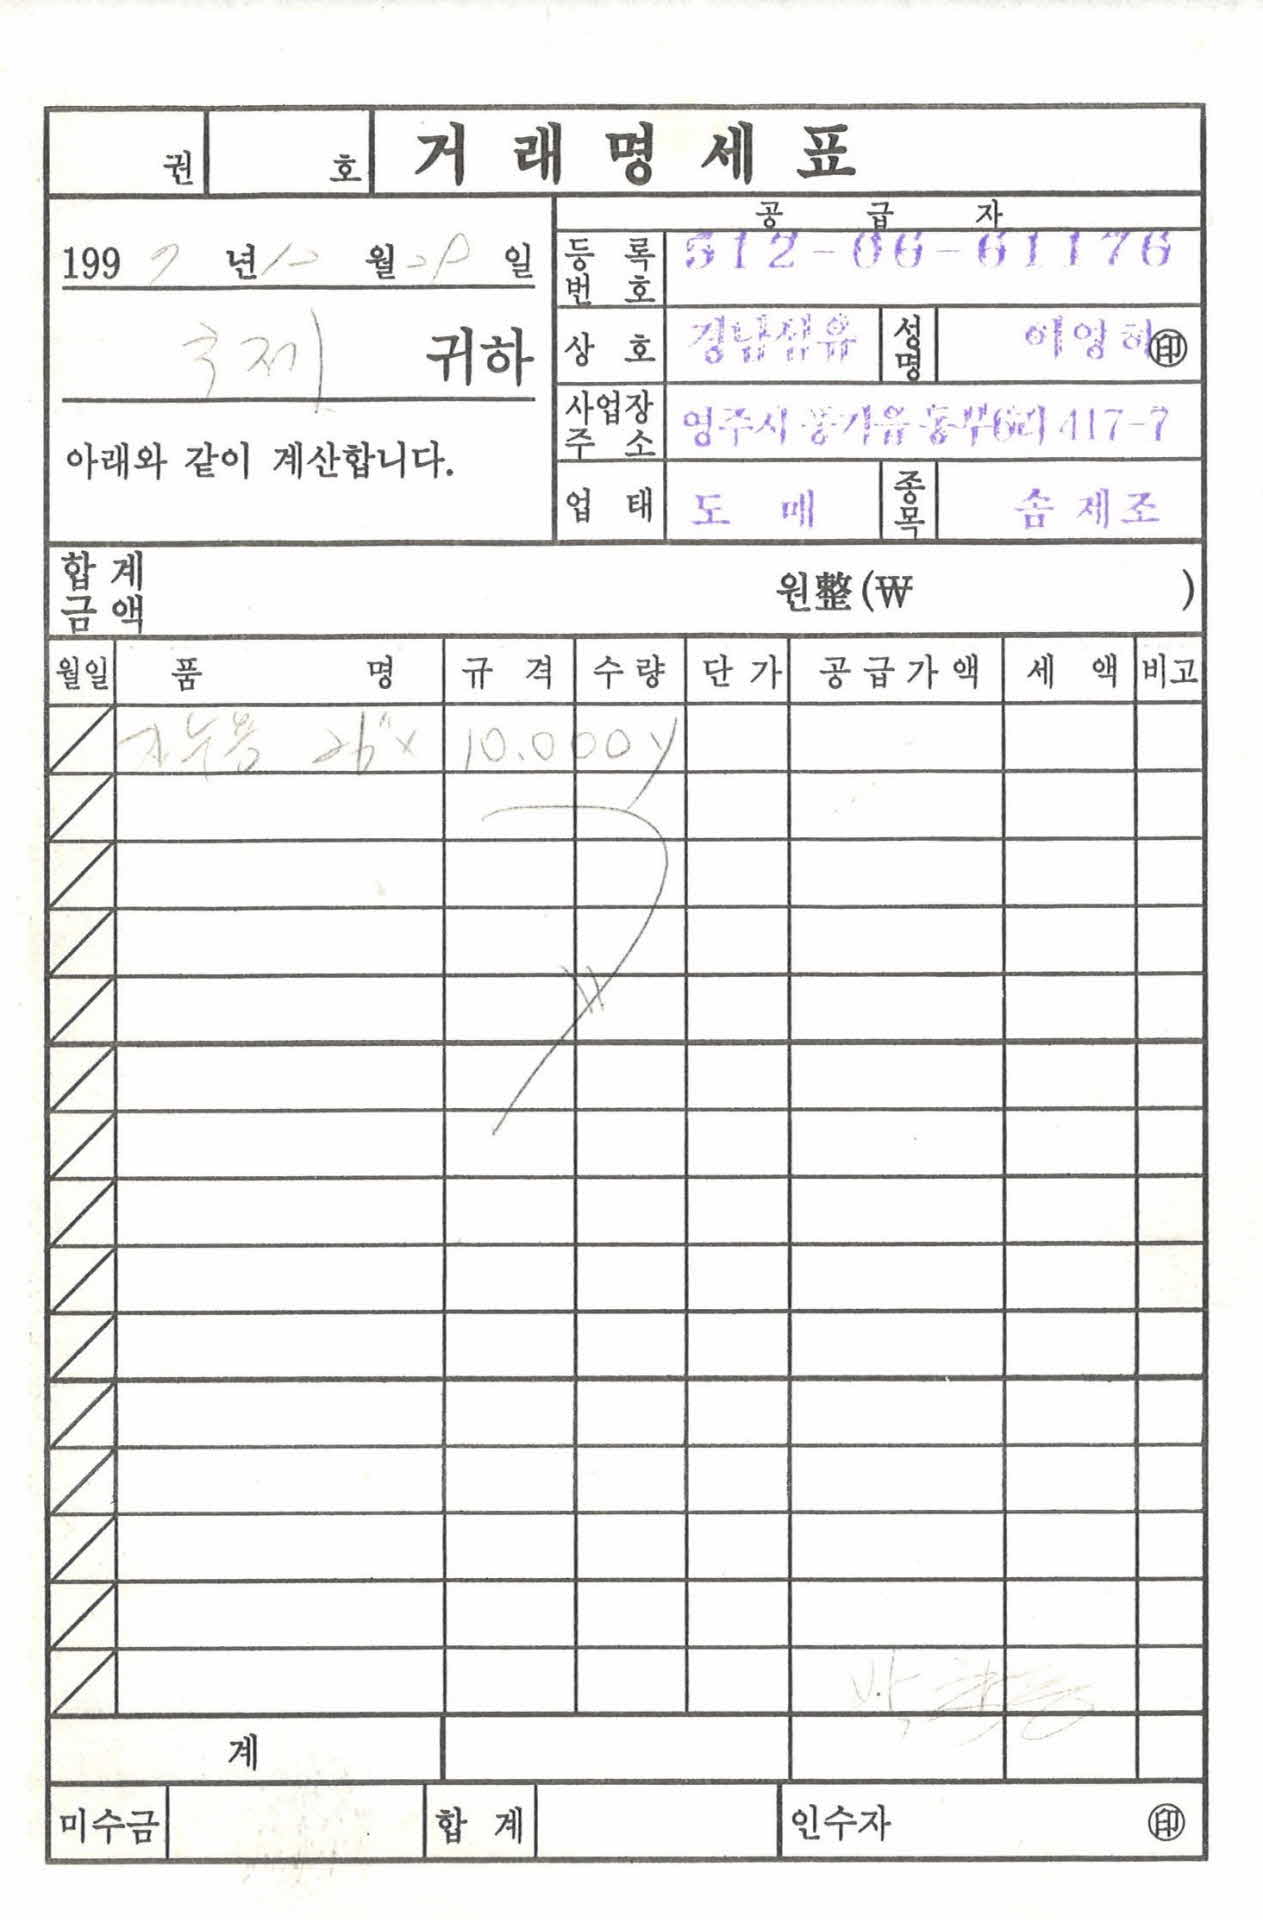 권 호 거래명세표
공급자
199 7 년 12 월 일
등록번호 512-06-61176
국제 귀하
상호 경남섬유 성명 이영하 ㊞
사업장주소 영주시 풍기읍 동부6리 417-7
아래와 같이 계산합니다.
업태 도매 종목 솜제조
합계금액 원整(₩ )
월일 품명 규격 수량 단가 공급가액 세액 비고
26"× 10.000y
계
미수금 합계 인수자 ㊞